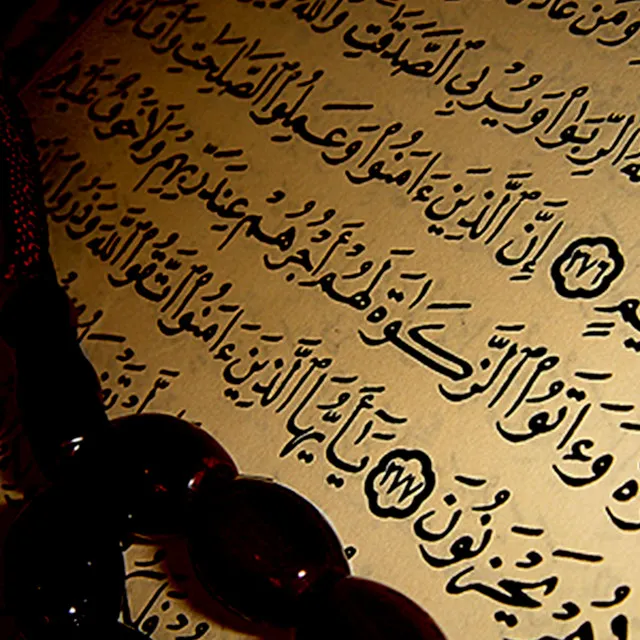 وَمَنْ عَادَ
ٱلرِّبَوٰا۟ وَيُرْبِى ٱلصَّدَقَٰتِ وَٱللَّهُ
٢٧٦ إِنَّ ٱلَّذِينَ ءَامَنُوا۟ وَعَمِلُوا۟ ٱلصَّٰلِحَٰتِ
وَءَاتَوُا۟ ٱلزَّكَوٰةَ لَهُمْ أَجْرُهُمْ عِندَ رَبِّهِمْ وَلَا خَوْفٌ
يَحْزَنُونَ ٢٧٧ يَٰٓأَيُّهَا ٱلَّذِينَ ءَامَنُوا۟ ٱتَّقُوا۟ ٱللَّهَ